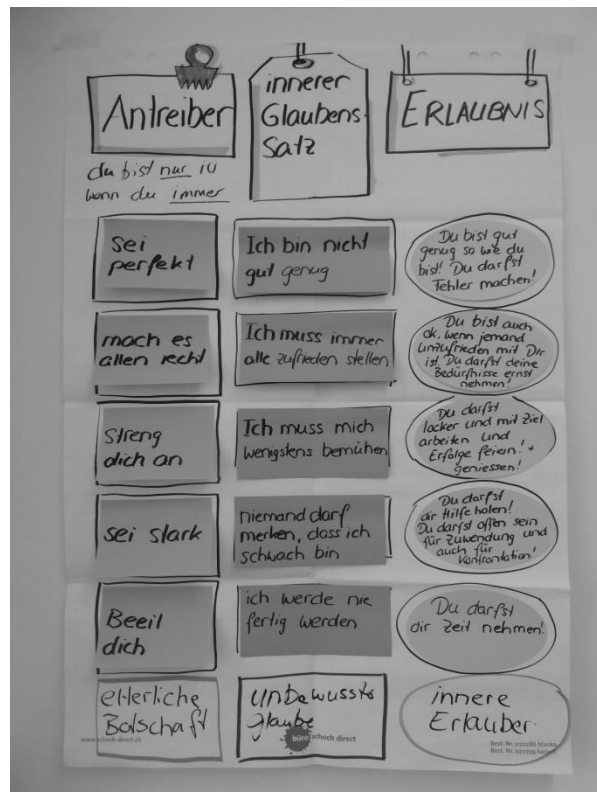 Antreiber
innerer
Glaubens-
Satz
ERLAUBNIS
du bist nur iO
wenn du immer
Sei
perfekt
Ich bin nicht
gut genug
Du bist gut
genug so wie du
bist! Du darfst
Fehler machen!
mach es
allen recht
Ich muss immer
alle zufrieden stellen
Du bist auch
ok, wenn jemand
unzufrieden mit Dir
ist. Du darfst deine
Bedürfnisse ernst
nehmen!
Streng
dich an
Ich muss mich
wenigstens bemühen
Du darfst
locker und mit Ziel
arbeiten und
Erfolge feiern! +
geniessen!
sei stark
niemand darf
merken, dass ich
schwach bin
Du darfst
dir Hilfe holen!
Du darfst offen sein
für Zuwendung und
auch für
Konfrontation!
Beeil
dich
ich werde nie
fertig werden
Du darfst
dir Zeit nehmen!
elterliche
Botschaft
unbewusste
glaube
innere
Erlauber
www.schoch-direct.ch
büro schoch direct
Best. Nr.
Best. Nr.